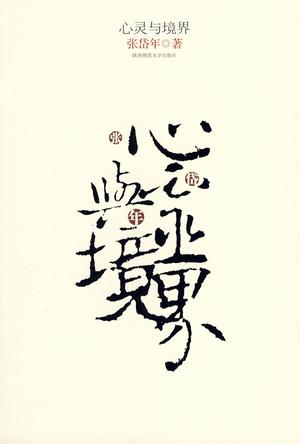 心灵与境界
张岱年◎著
陕西师范大学出版社
心靈
與境界
张
岱
年